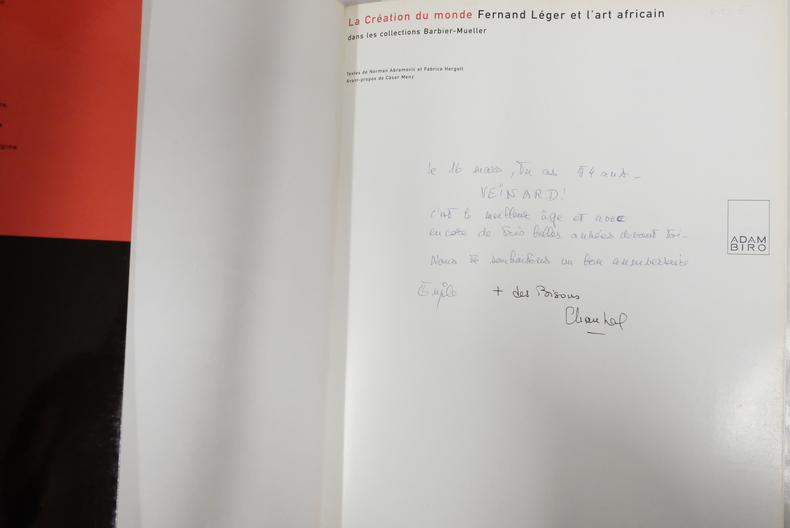 La Création du monde Fernand Léger et l'art africain
dans les collections Barbier-Mueller
Textes de Norman Abramovic et Fabrice Hergott
Avant-propos de Cäsar Menz
le 16 mars, Tu as 54 ans_
VEÏNARD!
c'est le meilleur âge et avec
encore de très belles années devant toi_
Nous te souhaitons un bon anniversaire
+ des Bisous
Chantal
ADAM
BIRO